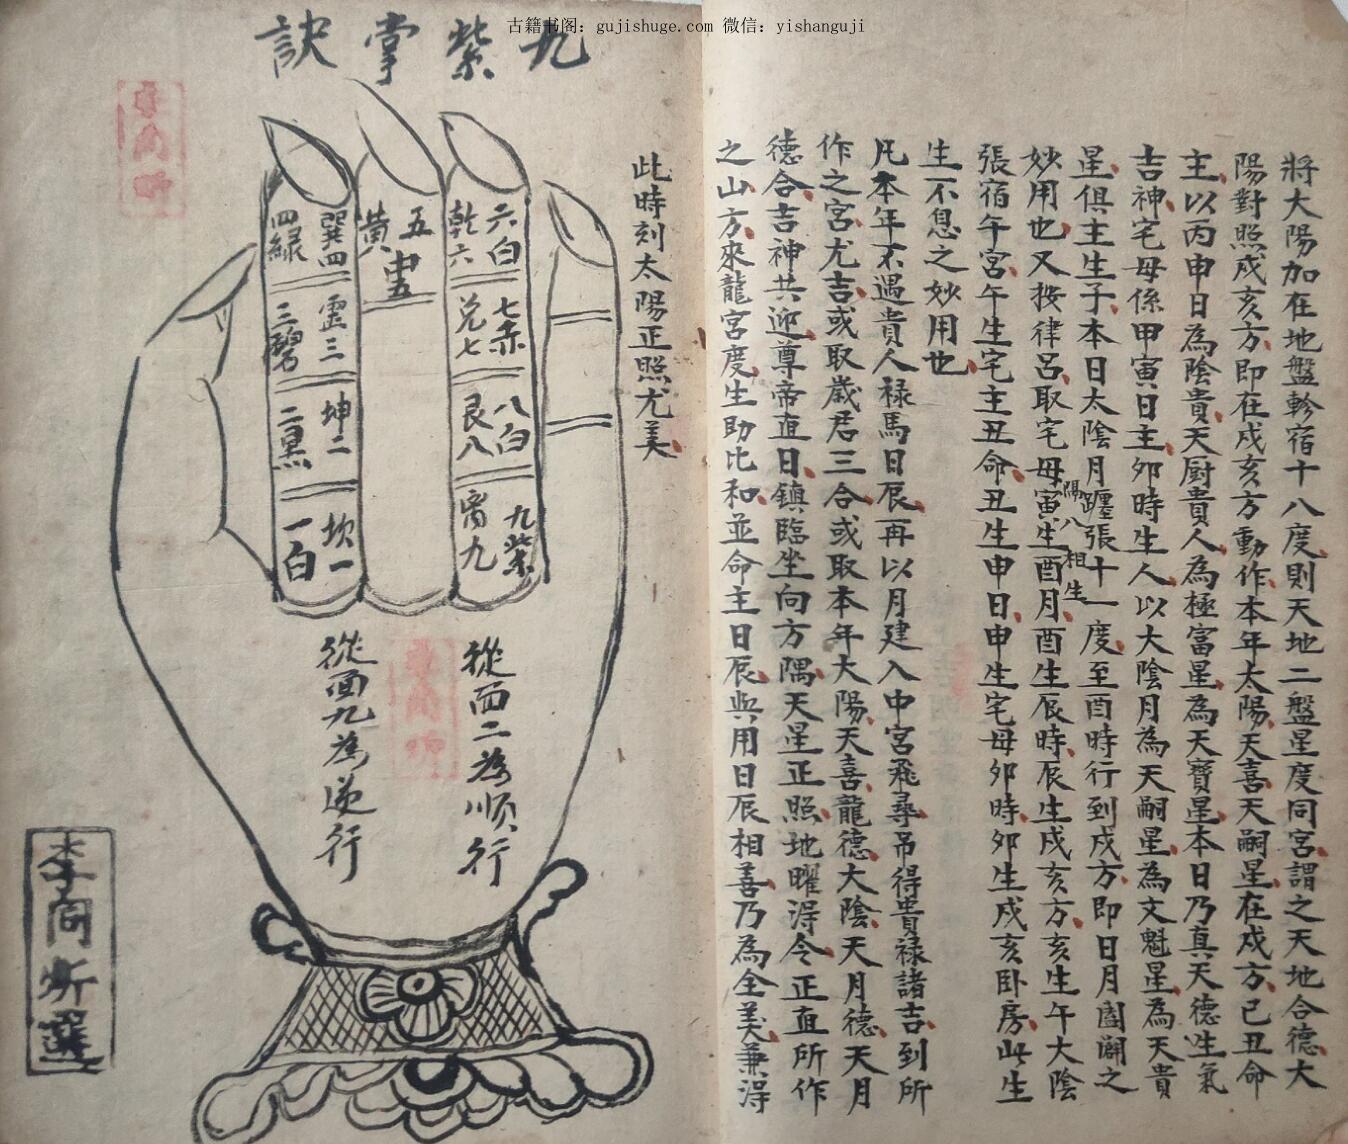 古籍书阁：gujishuge.com 微信：yishanguji
將大陽加在地盤軫宿十八度則天地二盤星度同宮謂之天地合德大
陽對照戍亥方即在戍亥方動作本年太陽天喜天嗣星在戍方己丑命
主以丙申日為陰貴天厨貴人為極富星為天寶星本日乃真天德生氣
吉神宅母係甲寅日主夘時生人以大陰月為天嗣星為文魁星為天貴
星俱主生子本日太陰月躔張十一度至酉時行到戍方即日月闔闢之
妙用也又按律呂取宅母寅生酉月酉生辰時辰生戍亥方亥生午大陰
隔八相生
張宿午宮午生宅主丑命丑生申日申生宅母夘時夘生戍亥卧房此生
生不息之妙用也
凡本年不遇貴人祿馬日辰再以月建入中宮飛尋吊得貴祿諸吉到所
作之宮尤吉或取歲君三合或取本年大陽天喜龍德大陰天月德天月
德合吉神共迎尊帝直日鎮臨坐向方隅天星正照地曜淂令正直所作
之山方來龍宮度生助比和並命主日辰與用日辰相善乃為全美兼淂
此時刻太陽正照尤美
九紫掌訣
六白
乾六
七赤
兌七
八白
艮八
九紫
離九
五黃
中五
巽四
四綠
震三
三碧
坤二
二黑
坎一
一白
從面二為順行
從面九為逆行